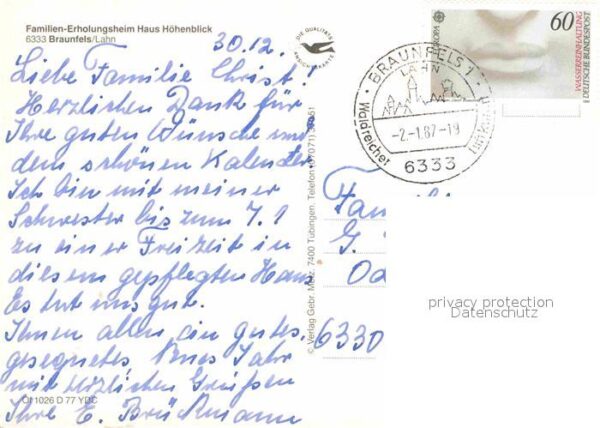 Familien-Erholungsheim Haus Höhenblick
6333 Braunfels/Lahn
30.12.
Liebe Familie Christ!
Herzlichen Dank für
Ihre guten Wünsche und
dem schönen Kalender
Ich bin mit meiner
Schwester bis zum 7.1
zu einer Freizeit in
diesem gepflegten Haus
Es tut uns gut.
Ihnen allen ein gutes,
gesegnetes Neues Jahr
mit herzlichen Grüßen
Ihre E. Brückmann
CI 1026 D 77 YDC
© Verlag Gebr. Metz, 7400 Tübingen, Telefon
DIE QUALITÄTS
ANSICHTSKARTE
BRAUNFELS 1
LAHN
-2.-1.87-19
6333
Waldreicher
EUROPA
60
WASSERREINHALTUNG
DEUTSCHE BUNDESPOST
Fam
G.
Od
6330
privacy protection
Datenschutz